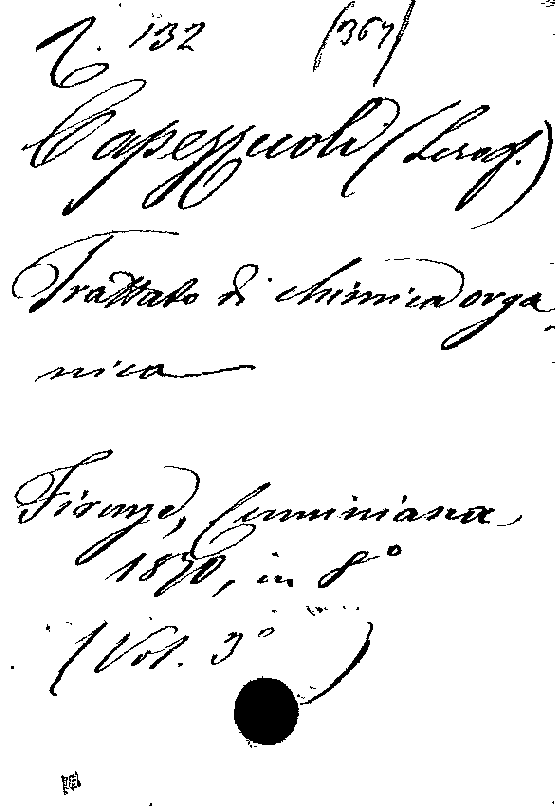 132 (367)
Capezzuoli (Seraf.)
Trattato di chimica orga
nica
Firenze, Cuminiana,
1870, in 8°
(Vol. 3°)